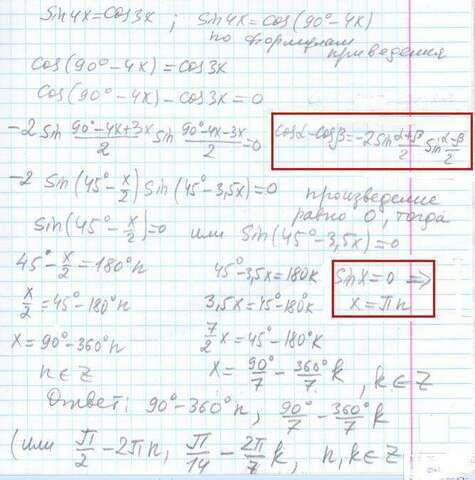 sin4x=cos3x ; sin4x=cos(90°-4x)
по формулам
приведения
cos(90°-4x)=cos3x
cos(90°-4x)-cos3x=0
-2sin (90°-4x+3x)/2 sin (90°-4x-3x)/2 =0
cosα-cosβ=-2sin (α+β)/2 sin (α-β)/2
-2 sin(45°-x/2) sin(45°-3,5x)=0
произведение
равно 0, тогда
sin(45°-x/2)=0 или sin(45°-3,5x)=0
45°-x/2=180°n 45°-3,5x=180k sinx=0 =>
x/2=45°-180°n 3,5x=45-180°k x=πn
x=90°-360°n 7/2 x=45°-180°k
n∈Z x=90°/7-360°/7 k, k∈Z
Ответ: 90°-360°n, 90°/7-360°/7 k
(или π/2-2πn, π/14-2π/7 k, n,k∈Z